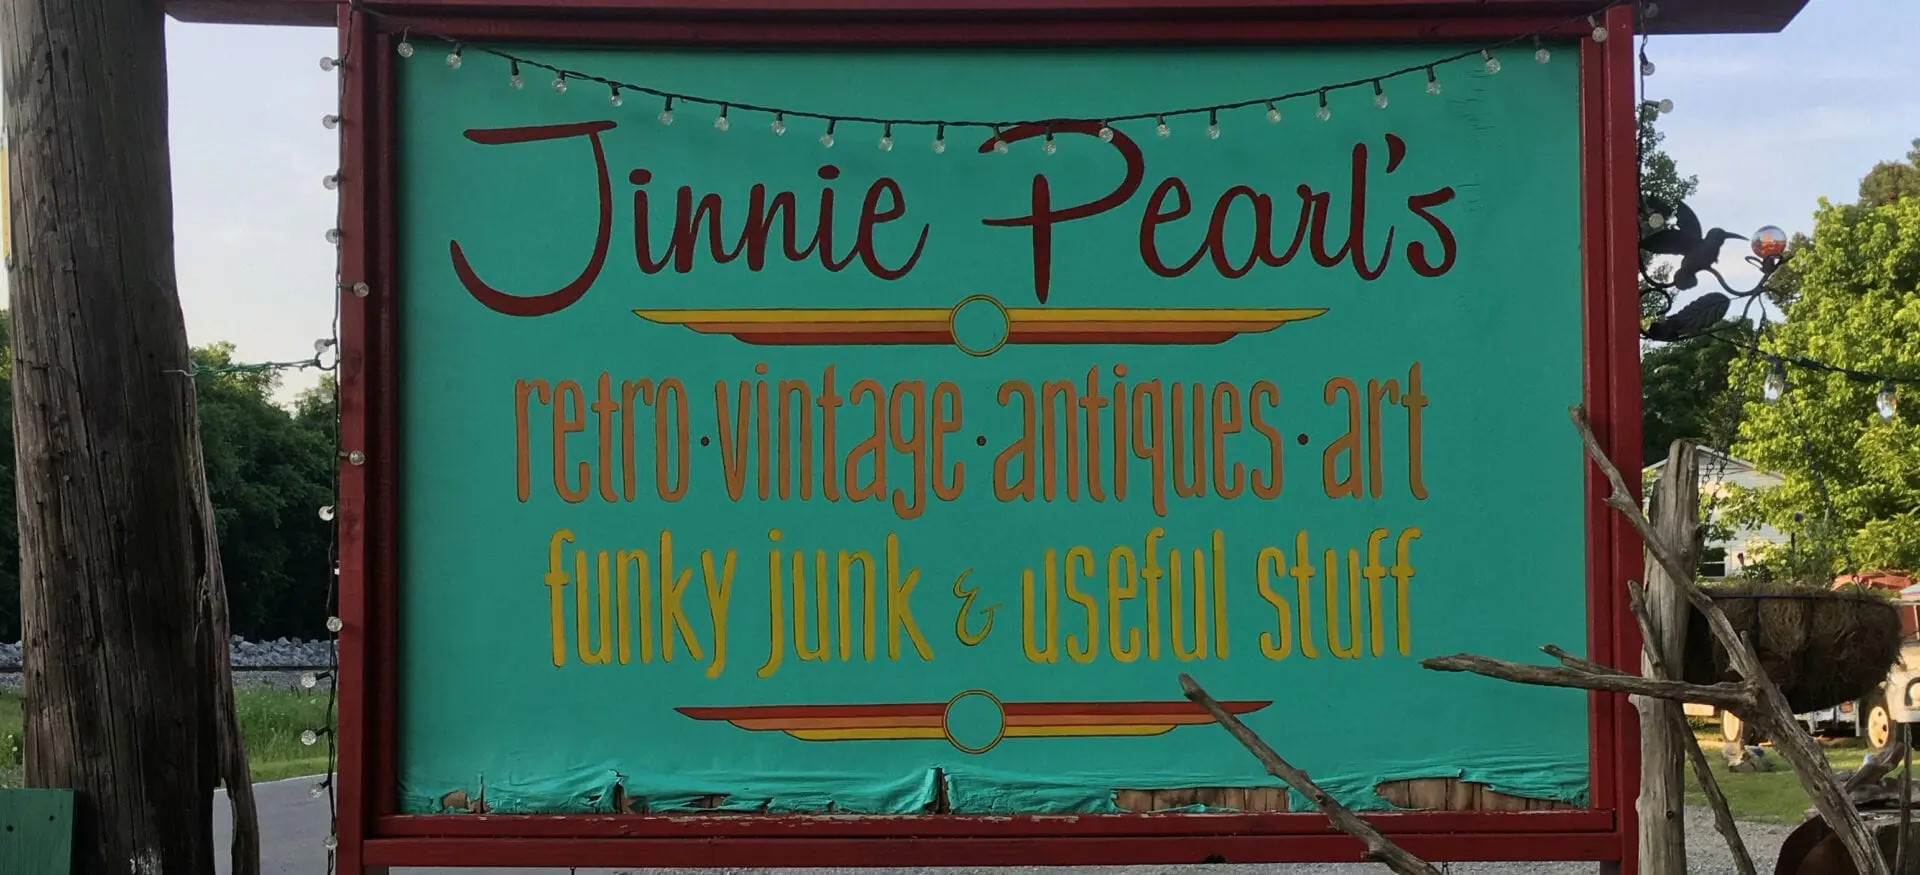 Jinnie Pearl's
retro·vintage·antiques·art
funky junk & useful stuff